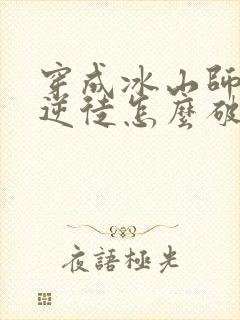 穿成冰山師
逆徒怎麼破
夜語極光